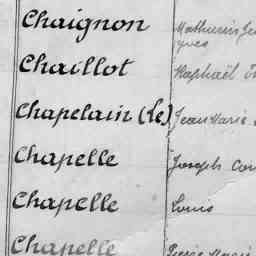 Chaignon Mathurin
Yves
Chaillot Raphaël
Chapelain (Le) Jean Marie
Chapelle Joseph
Chapelle Louis
Chapelle Pierre Marie